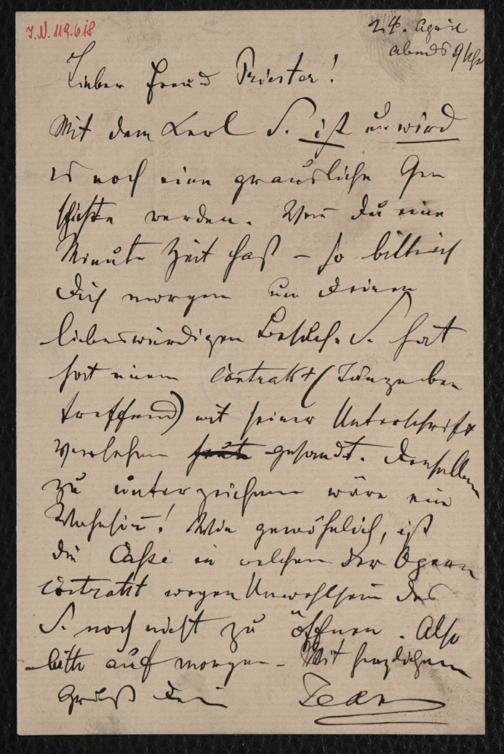 I.N. 119.618
24. April
Abends 9 Uhr
Lieber Freund Priester!
Mit dem Kerl S. ist u. wird
es noch eine grausliche Ge
schichte werden. Wenn Du eine
Minute Zeit hast – so bitte ich
Dich morgen um Deinen
liebenswürdigen Besuch. S. hat
hat einen Contrakt (Tänze be
treffend) mit seiner Unterschrift
versehen heute gesandt. Denselben
zu unterzeichnen wäre ein
Wahnsinn! Wie gewöhnlich, ist
die Casse in welchem der Opern
contrakt wegen Unwohlsein des
S. noch nicht zu öffnen. Also
bitte auf morgen – Mit herzlichem
Gruß Dein Jean